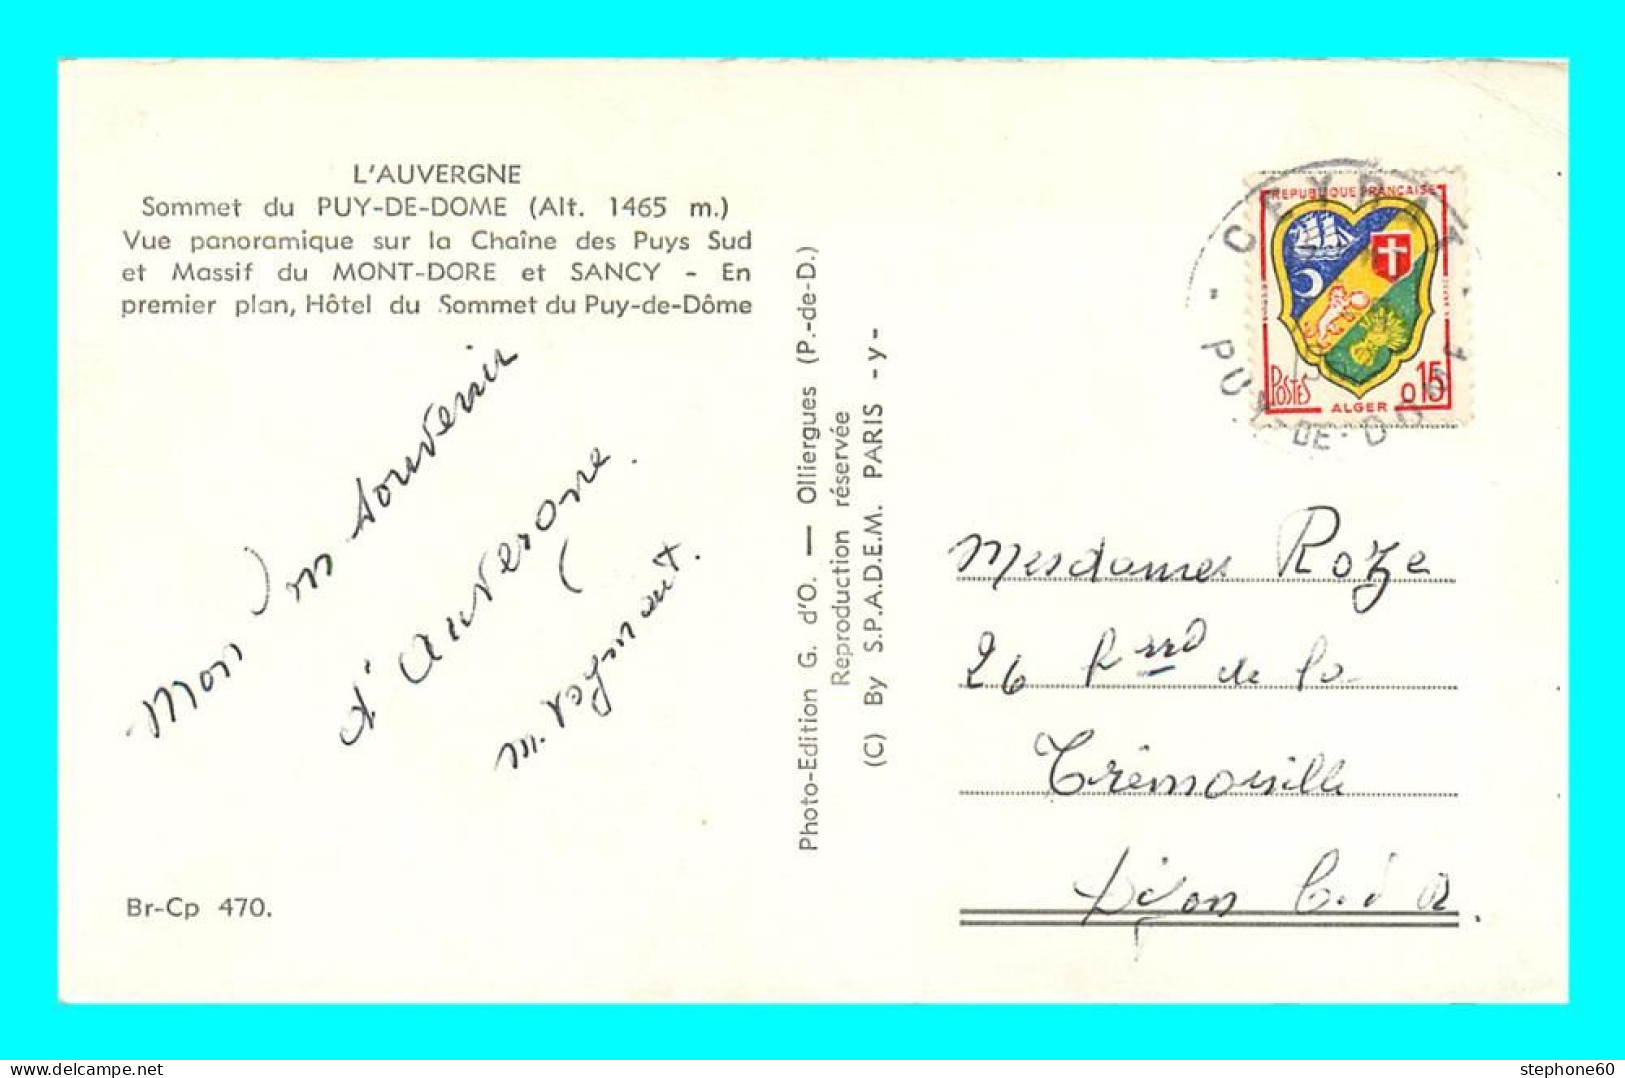 L'AUVERGNE
Sommet du PUY-DE-DOME (Alt. 1465 m.)
Vue panoramique sur la Chaîne des Puys Sud
et Massif du MONT-DORE et SANCY - En
premier plan, Hôtel du Sommet du Puy-de-Dôme
Mon souvenir
d'Auvergne.
Br-Cp 470.
Photo-Edition G. d'O. — Olliergues (P.-de-D.)
Reproduction réservée
(C) By S.P.A.D.E.M. PARIS -y-
REPUBLIQUE FRANÇAISE
POSTES
ALGER
0,15
CEYRAT
PUY-DE-DOME
Mesdames Roze
26 de la
Trémouille
Dijon C. d'Or.
stephone60